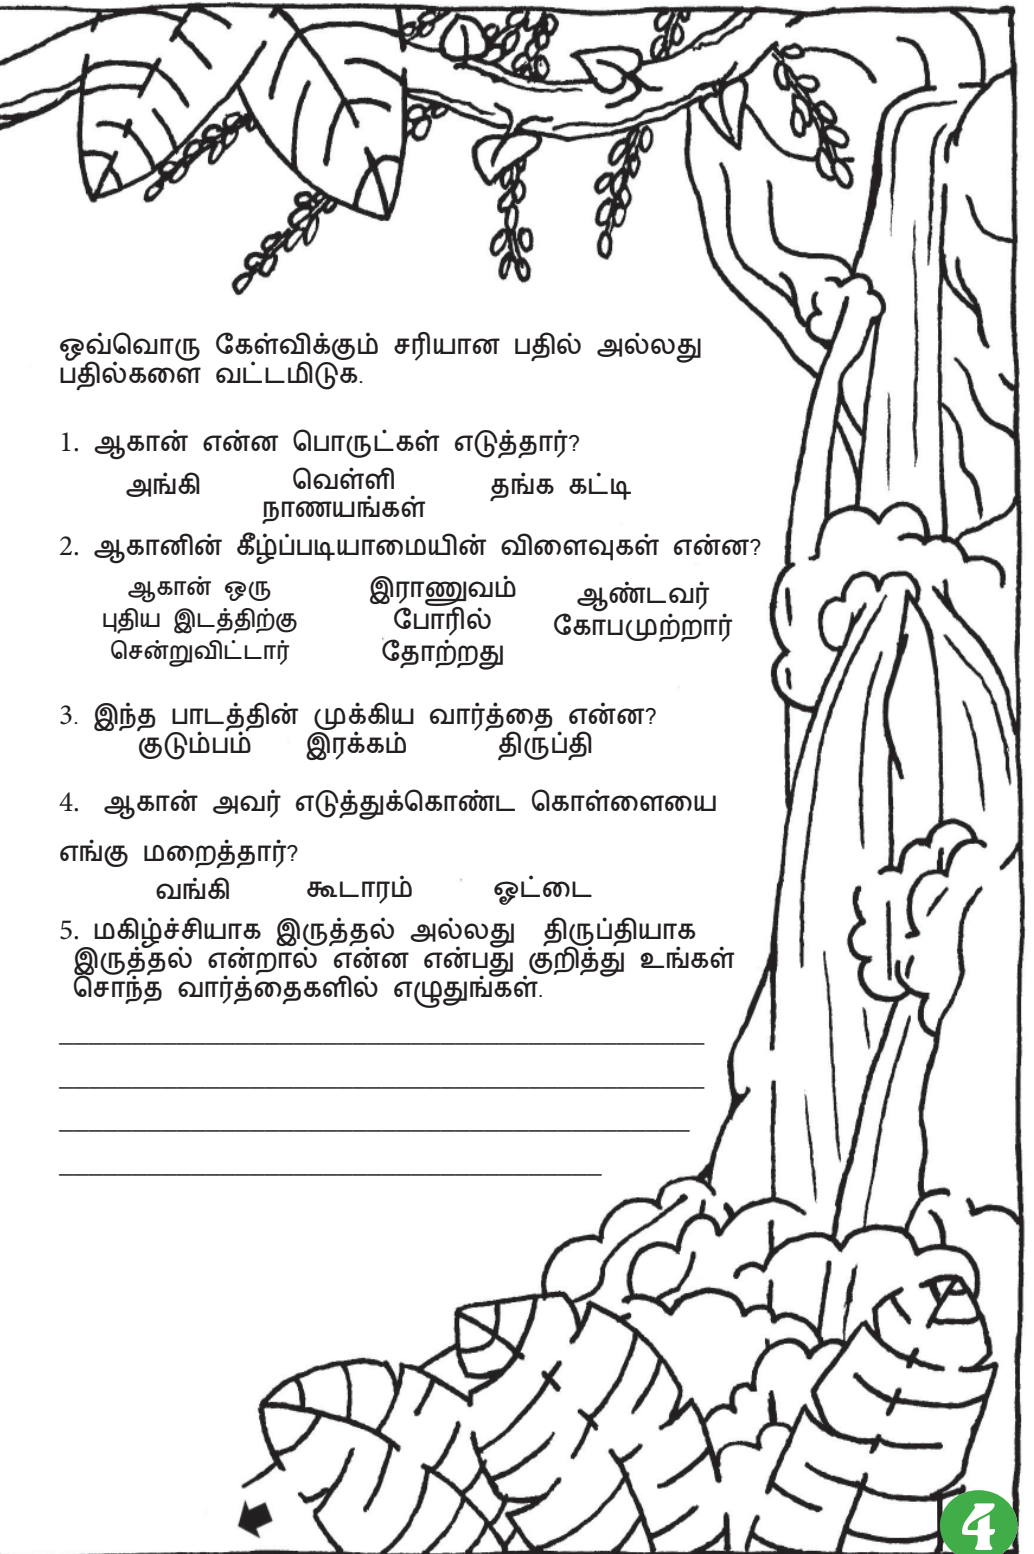 ஒவ்வொரு கேள்விக்கும் சரியான பதில் அல்லது
பதில்களை வட்டமிடுக.
1. ஆகான் என்ன பொருட்கள் எடுத்தார்?
அங்கி வெள்ளி தங்க கட்டி
நாணயங்கள்
2. ஆகானின் கீழ்ப்படியாமையின் விளைவுகள் என்ன?
ஆகான் ஒரு இராணுவம் ஆண்டவர்
புதிய இடத்திற்கு போரில் கோபமுற்றார்
சென்றுவிட்டார் தோற்றது
3. இந்த பாடத்தின் முக்கிய வார்த்தை என்ன?
குடும்பம் இரக்கம் திருப்தி
4. ஆகான் அவர் எடுத்துக்கொண்ட கொள்ளையை
எங்கு மறைத்தார்?
வங்கி கூடாரம் ஓட்டை
5. மகிழ்ச்சியாக இருத்தல் அல்லது திருப்தியாக
இருத்தல் என்றால் என்ன என்பது குறித்து உங்கள்
சொந்த வார்த்தைகளில் எழுதுங்கள்.
4